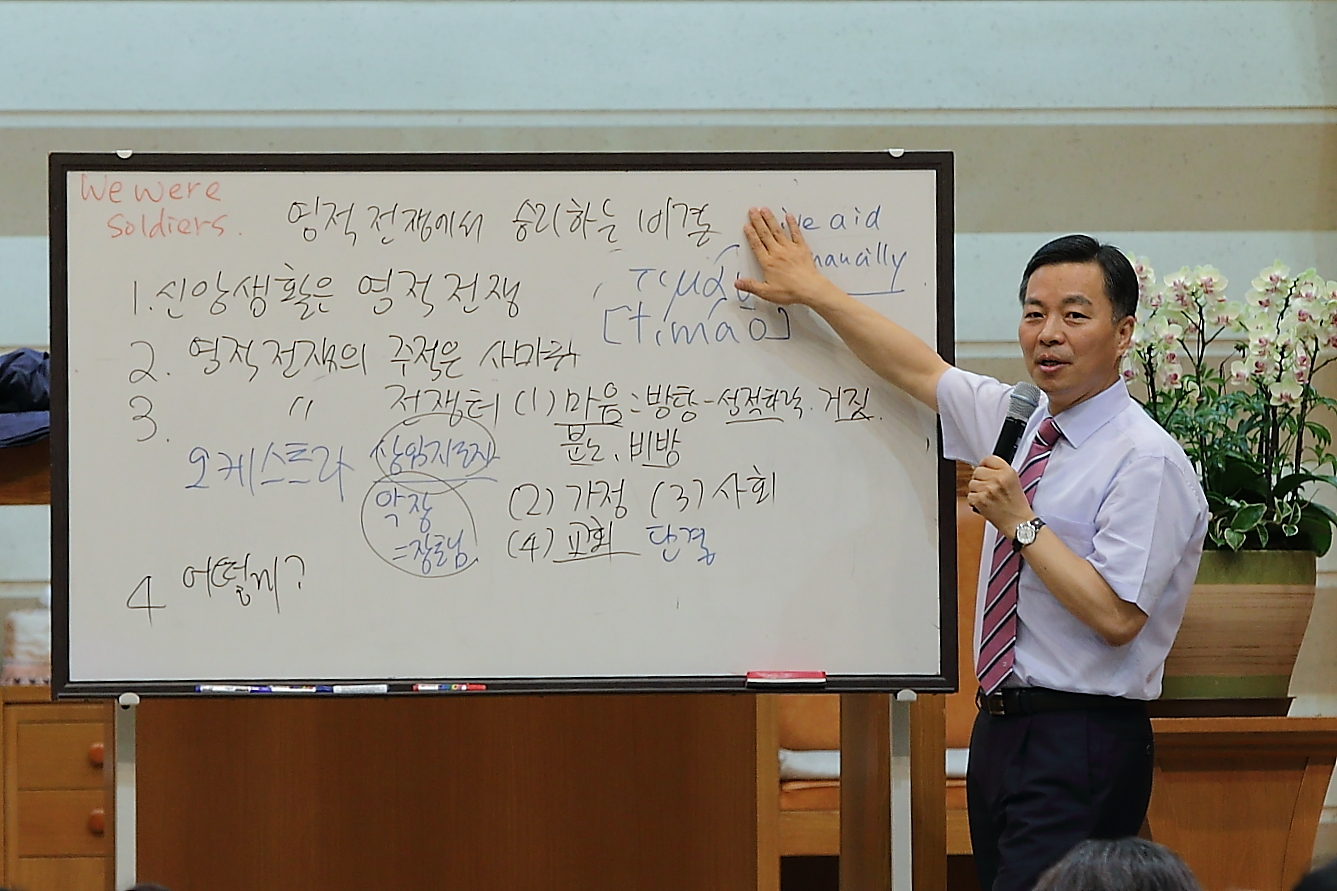 We were
soldiers.
영적 전쟁에서 승리하는 비결
ive aid
nancilly
τιμάω
[timaō]
1. 신앙생활은 영적 전쟁
2. 영적 전쟁의 주적은 사마귀
3. 〃 전쟁터 (1) 마음 : 방탕 - 성적타락, 거짓.
분노, 비방
오케스트라 상임지휘자
악장 (2) 가정 (3) 사회
=장로님. (4) 교회 단결
4 어떻게?